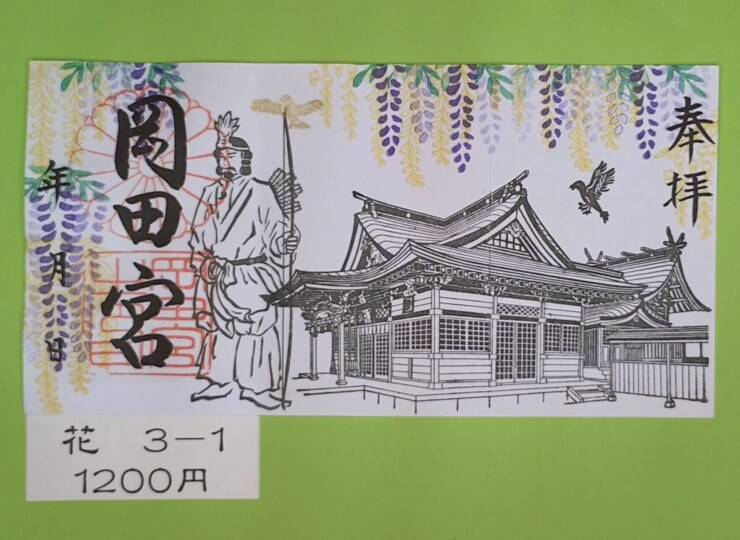 奉拝
岡田宮
年 月 日
花 3-1
1200円